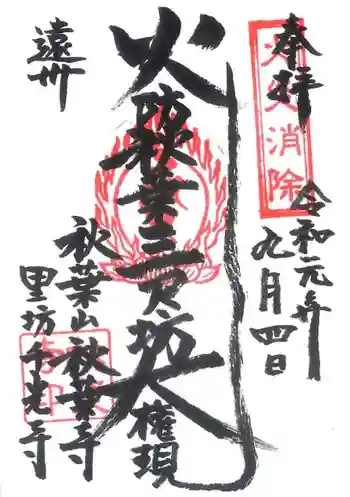 奉拝
火災消除
令和元年
九月四日
火防
秋葉三尺坊大
権現
遠州
秋葉山秋葉寺
里坊千光寺